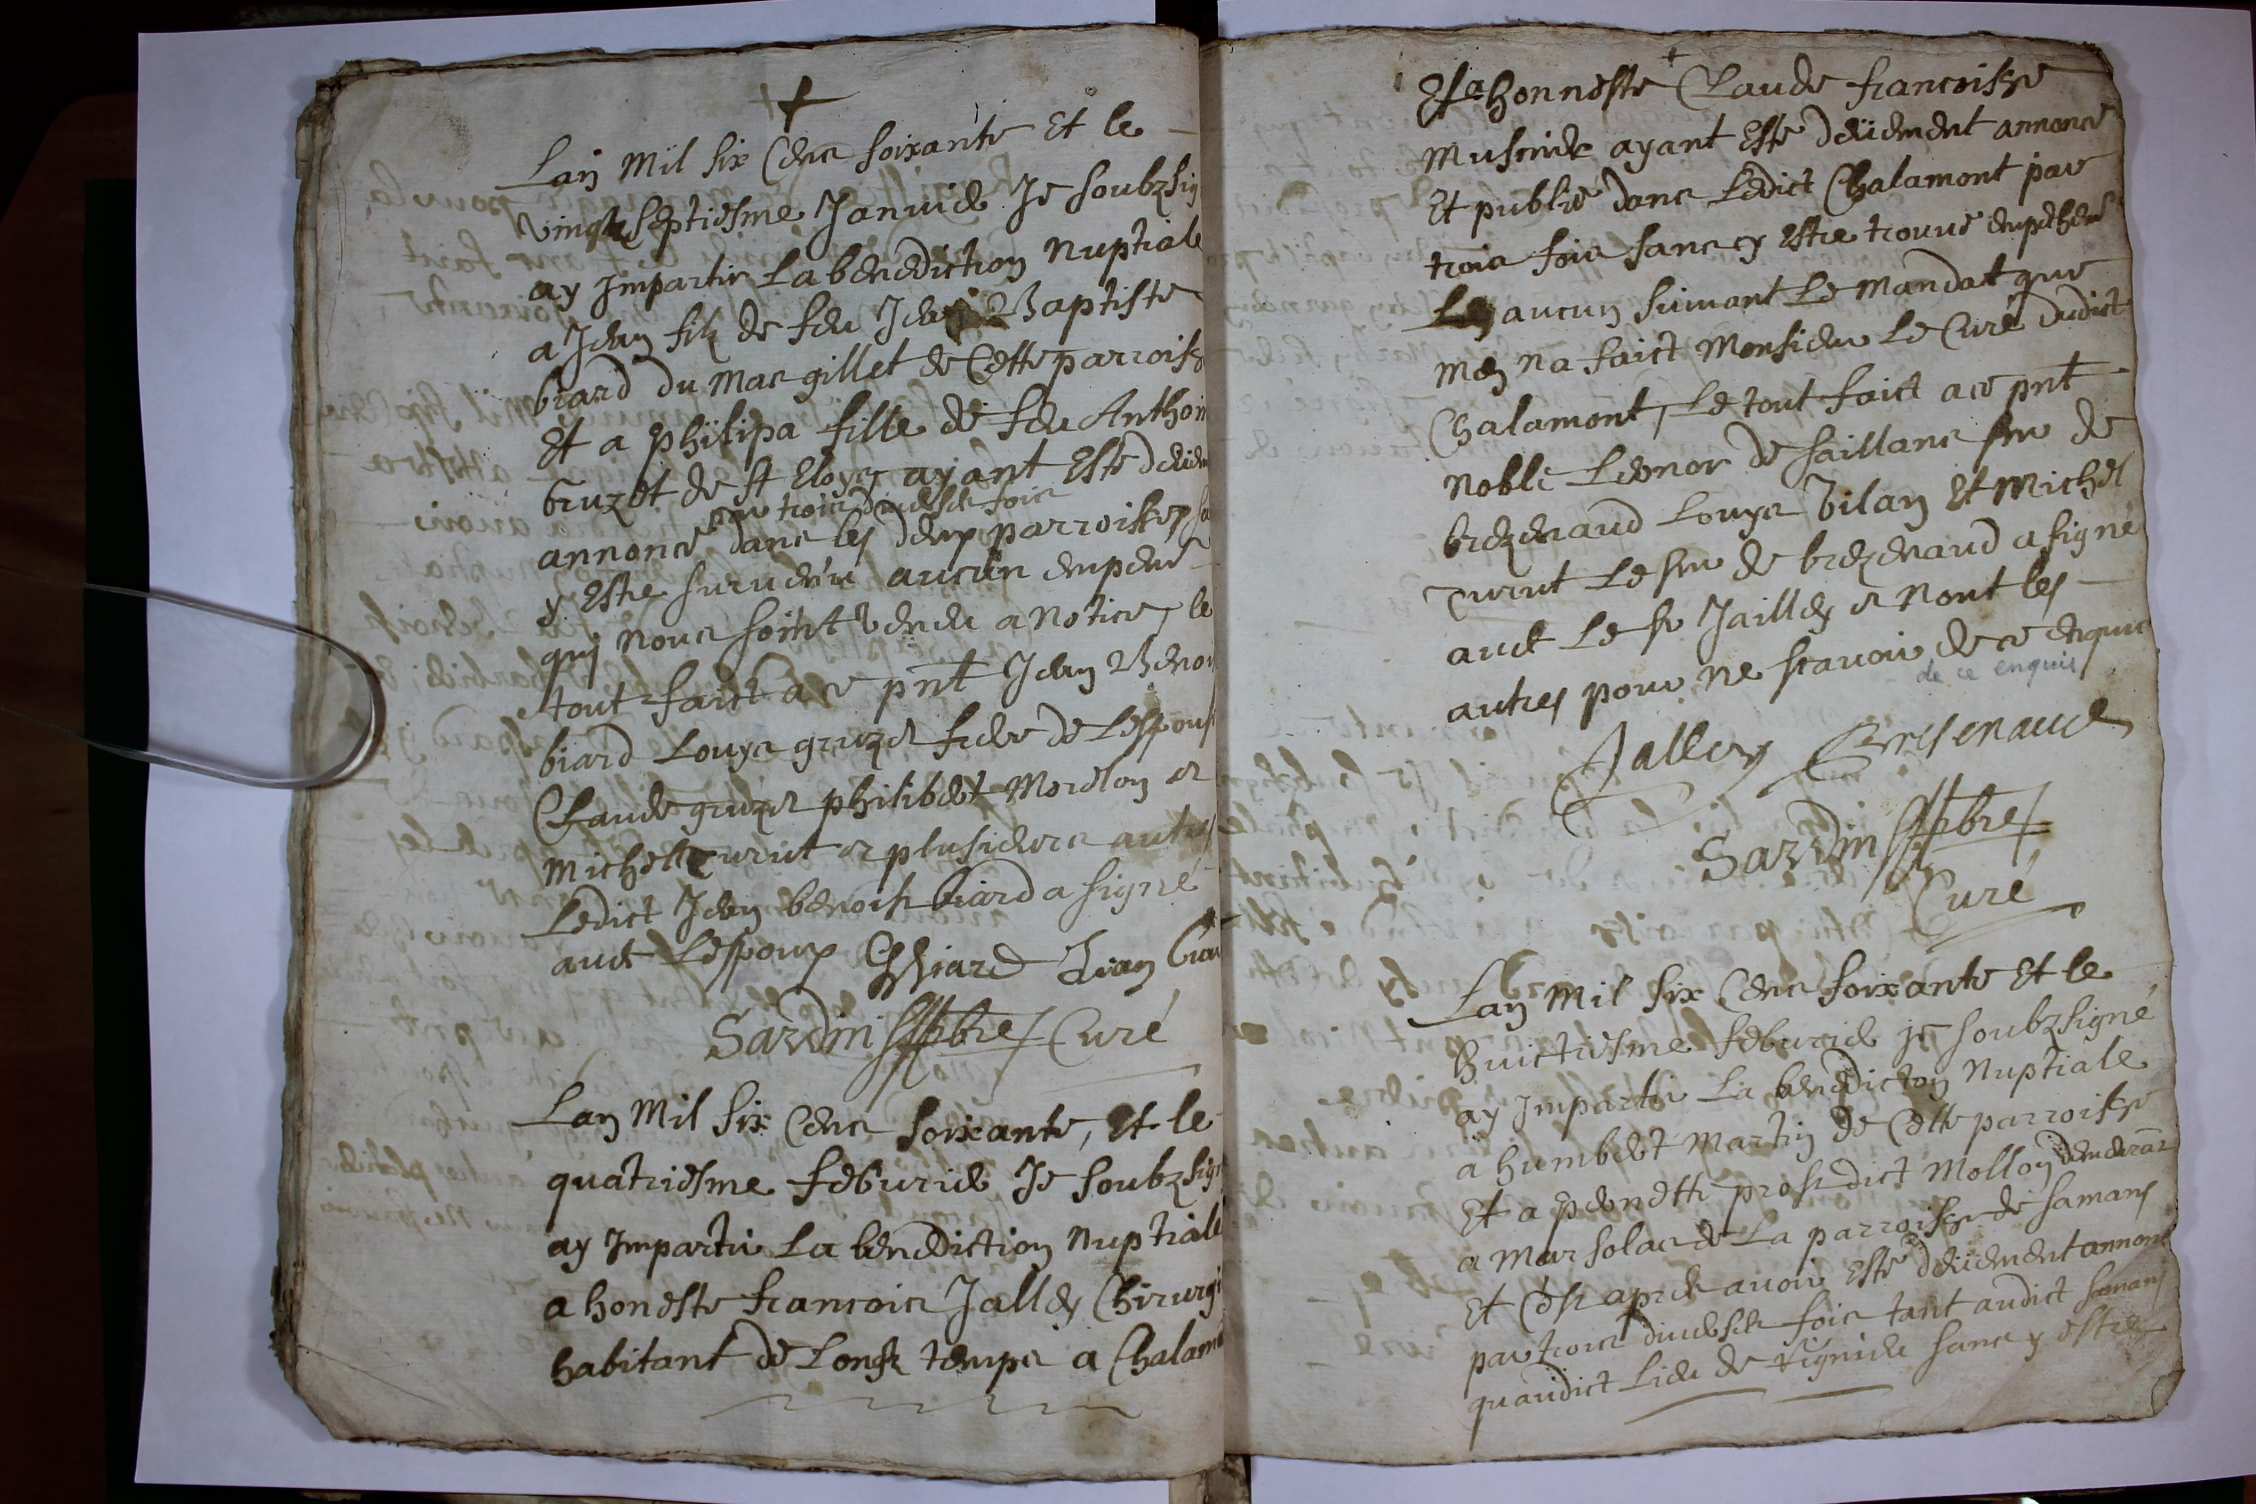 Lan Mil six Cens soixante Et le
vingt septiesme Januier Je soubzsig
ay Impartir La benediction Nuptiale
a Jean filz de feu Jean Baptiste
biard du Mas gillet de Cette parroiss
Et a philipa fille de feu Anthoin
gruzet de St Eloys ayant Esté deuem
par trois diuerses fois
annoncé dans les deux parroisses sa
y Estre suruenu aucun empeme
qui nous soint venu a Notice, le
tout faict a ce pnt Jean Benoi
biard Louys gruzet frere de Lespous
Claude gruzet philibert Morelon et
Michel Curut et plusieurs autres
Ledict Jean benoist biard a signé
auec Lespoux JBBiard Jean biar
Sarzdin pbre Curé
Lan Mil six Cens soixante, Et le
quatriesme feburier Je soubzsign
ay Impartir La benediction Nuptiale
a honeste francois Jalley Chirurgi
habitant de Longz temps a Chalamo
Et a honneste Claude francoisse
Musnier ayant Esté deüement annoncé
Et publié dans Ledict Chalamont par
trois fois sans y Estre trouué empechem
aucun suiuant Le Mandat que
men na faict Monsieur Le Curé dudict
Chalamont, Le tout faict a ce pnt
Noble Leonor de saillans sr de
brezenaud Louys Vilan Et Michel
Curut Le sr de brezenaud a signé
auec Le sr Jailley et Nont les
autres pour ne scauoir de ce enquis
de ce enquis
Jalley Bresenaud
Sarzdin pbre
Curé
Lan Mil six Cens soixante Et le
huictiesme feburier je soubzsigné
ay Impartir La benediction Nuptiale
a humbert Martin de Cette parroisse
Et a pernette prost dict Mollon demeurant
a Marsolas de La parroisse de samans
Et Cest apres auoir Esté deüement annoncé
par trois diuerses fois tant audict samans
quaudict Lieu de Vignieu sans y estre